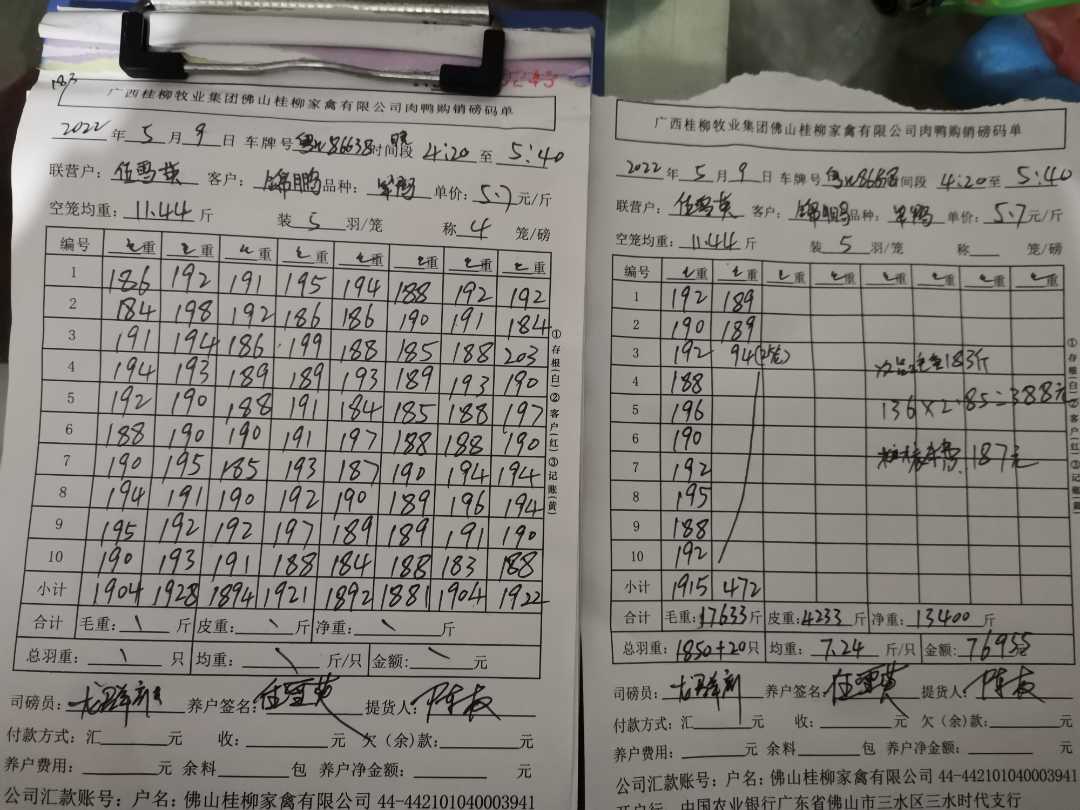 广西桂柳牧业集团佛山桂柳家禽有限公司肉鸭购销磅码单
2022年5月9日 车牌号 86638 时间段 4:20至5:40
联营户: 任雪英 客户: 锦鹏 品种: 单价: 5.7元/斤
空笼均重: 11.44斤 装5羽/笼 称4笼/磅
编号 毛重 毛重 毛重 毛重 毛重 毛重 毛重 毛重
1 186 192 191 195 194 188 192 192
2 184 198 192 186 186 190 191 184
3 191 194 186 199 188 185 188 203
4 194 193 189 189 193 189 193 190
5 192 190 188 191 184 185 188 197
6 188 190 190 191 197 188 188 190
7 190 195 185 193 187 190 194 194
8 194 191 190 192 190 189 196 194
9 195 192 192 197 189 189 191 190
10 190 193 191 188 184 188 183 188
小计 1904 1928 1894 1921 1892 1881 1904 1922
合计 毛重: \ 斤 皮重: \ 斤 净重: \ 斤
总羽重: \ 只 均重: \ 斤/只 金额: \ 元
司磅员: 养户签名: 任雪英 提货人: 陈友
付款方式: 汇 元 收: 元 欠(余)款: 元
养户费用: 元 余料 包 养户净金额: 元
公司汇款账号: 户名: 佛山桂柳家禽有限公司 44-442101040003941
①存根(白)②客户(红)③记账(黄)
广西桂柳牧业集团佛山桂柳家禽有限公司肉鸭购销磅码单
2022年5月9日 车牌号 86638 间段 4:20至5:40
联营户: 任雪英 客户: 锦鹏 品种: 单价: 5.7元/斤
空笼均重: 11.44斤 装5羽/笼 称 笼/磅
编号 毛重 毛重 毛重 毛重 毛重 毛重 毛重 毛重
1 192 189
2 190 189
3 192 94
4 188
5 196
6 190
7 192
8 195
9 188
10 192
183斤
136×2.85=388元
187元
小计 1915 472
合计 毛重: 17633斤 皮重: 4233斤 净重: 13400斤
总羽重: 1850+20只 均重: 7.24斤/只 金额: 76955元
司磅员: 养户签名: 任雪英 提货人: 陈友
付款方式: 汇 元 收: 元 欠(余)款: 元
养户费用: 元 余料 包 养户净金额: 元
公司汇款账号: 户名: 佛山桂柳家禽有限公司 44-442101040003941
开户行: 中国农业银行广东省佛山市三水区三水时代支行
①存根(白)②客户(红)③记账(黄)